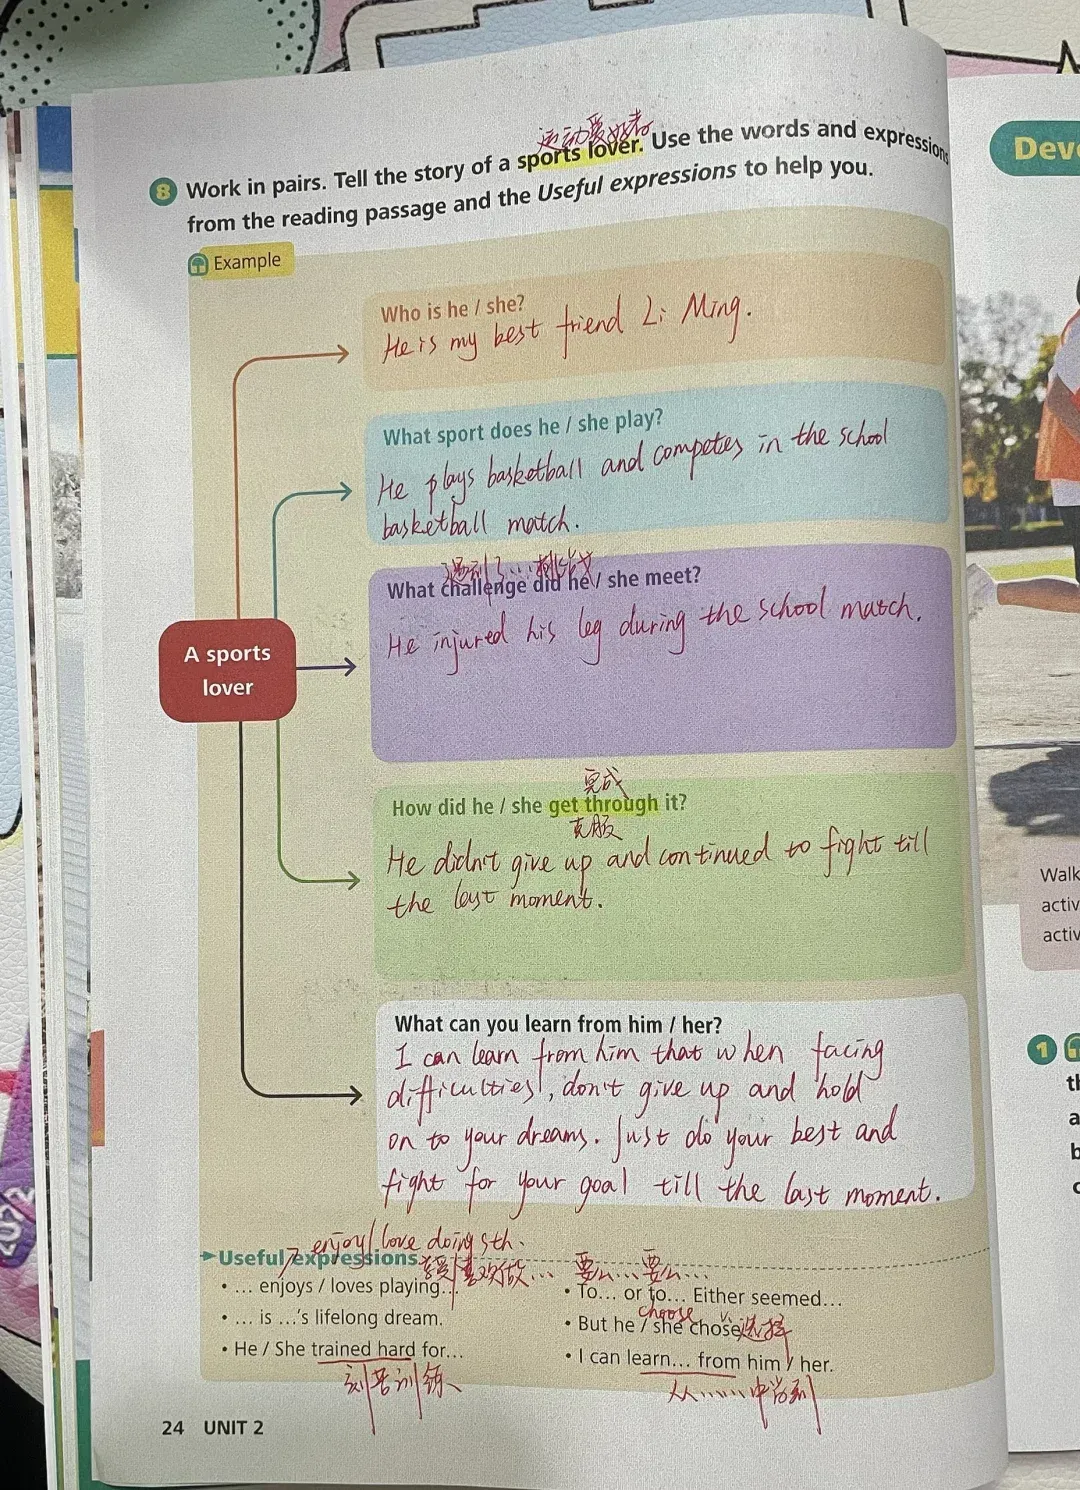 运动爱好者
8 Work in pairs. Tell the story of a sports lover. Use the words and expressions
from the reading passage and the Useful expressions to help you.
Example
Who is he / she?
He is my best friend Li Ming.
What sport does he / she play?
He plays basketball and competes in the school
basketball match.
遇到了…挑战
What challenge did he / she meet?
He injured his leg during the school match.
A sports
lover
完成
How did he / she get through it?
克服
He didn't give up and continued to fight till
the last moment.
What can you learn from him / her?
I can learn from him that when facing
difficulties, don't give up and hold
on to your dreams. Just do your best and
fight for your goal till the last moment.
enjoy/love doing sth.
Useful expressions
喜欢做…
• … enjoys / loves playing…
• … is …'s lifelong dream.
• He / She trained hard for…
刻苦训练
要么…要么…
• To… or to… Either seemed…
choose v.
• But he / she chose 选择
• I can learn… from him / her.
从……中学到
24 UNIT 2
Deve
Walk
activ
activ
1
th
a
b
c